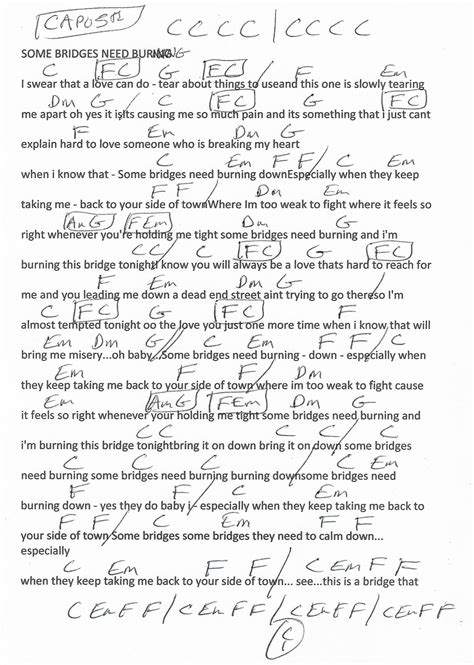 CAPO 5th C C C C / C C C C
SOME BRIDGES NEED BURNING
C [FC] G [FC] F Em
I swear that a love can do - tear about things to useand this one is slowly tearing
Dm G / C [FC] G [FC]
me apart oh yes it isIts causing me so much pain and its something that i just cant
F Em Dm G
explain hard to love someone who is breaking my heart
C Em F F / C Em
when i know that - Some bridges need burning downEspecially when they keep
F F / Dm Em
taking me - back to your side of townWhere Im too weak to fight where it feels so
[Am G] [F Em] Dm G
right whenever you're holding me tight some bridges need burning and i'm
C C / C [FC] G [FC]
burning this bridge tonightI know you will always be a love thats hard to reach for
F Em Dm G
me and you leading me down a dead end street aint trying to go thereso I'm
C [FC] G [FC] F
almost tempted tonight oo the love you just one more time when i know that will
Em Dm G / C Em F F / C
bring me misery...oh baby..Some bridges need burning - down - especially when
Em F F / Dm
they keep taking me back to your side of town where im too weak to fight cause
Em [Am G] [F Em] Dm G
it feels so right whenever your holding me tight some bridges need burning and
C C / C C
i'm burning this bridge tonightbring it on down bring it on down some bridges
C C / C Em
need burning some bridges need burning burning downsome bridges need
F F / C Em
burning down - yes they do baby i - especially when they keep taking me back to
F F / C Em F F
your side of town Some bridges some bridges they need to calm down...
especially
C Em F F / C Em F F
when they keep taking me back to your side of town... see...this is a bridge that
C Em F F / C Em F F / C Em F F / C Em F F
C